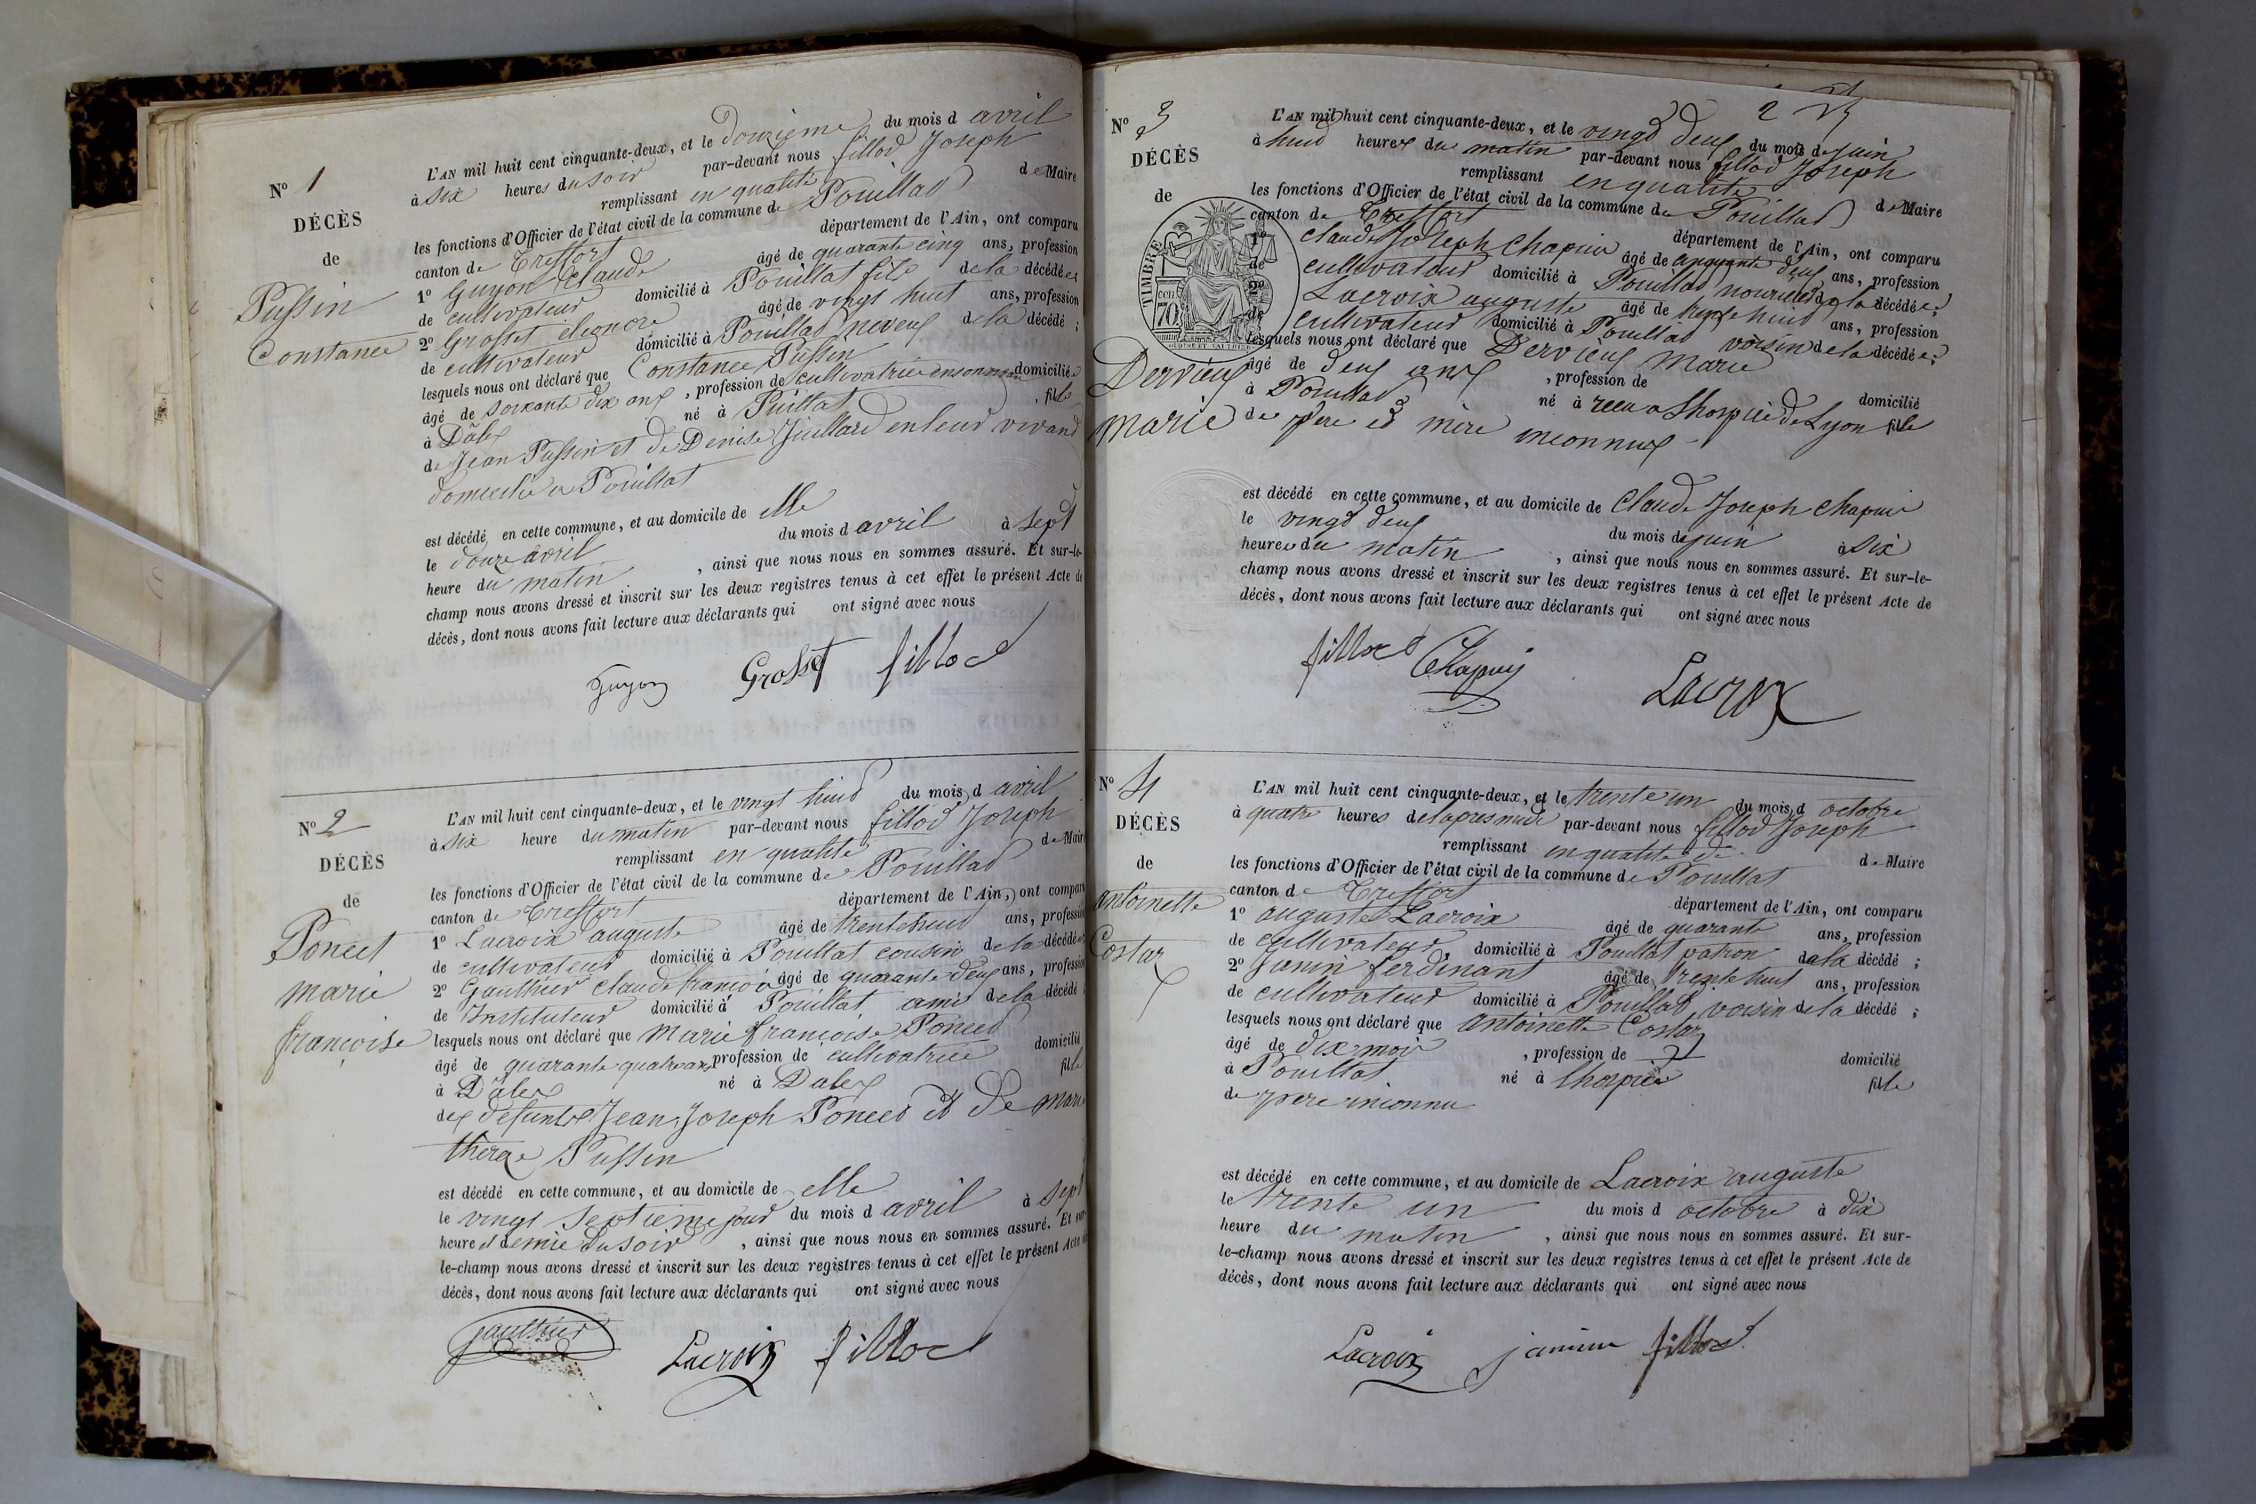 N° 1
DÉCÈS
de
Pussin
Constance
L'AN mil huit cent cinquante-deux, et le douzieme du mois d avril
à six heures du soir par-devant nous fillod Joseph
remplissant en qualité de Maire
les fonctions d'Officier de l'état civil de la commune de Pouillad
canton de Treffort département de l'Ain, ont comparu
1° Guyon Claude âgé de quarante cinq ans, profession
de cultivateur domicilié à Pouillat fils de la décédée;
2° Grosset éléonore âgé de vingt huit ans, profession
de cultivateur domicilié à Pouillad neveux de la décédé ;
lesquels nous ont déclaré que Constance Pussin
âgé de soixante dix ans, profession de cultivatrice domiciliée
à Dâlex né à Puillat, fille
de Jean Pussin et de Denise Juillard en leur vivand
domicilié a Pouillat
est décédé en cette commune, et au domicile de elle
le douze avril du mois d avril à sept
heure du matin, ainsi que nous nous en sommes assuré. Et sur-le-
champ nous avons dressé et inscrit sur les deux registres tenus à cet effet le présent Acte de
décès, dont nous avons fait lecture aux déclarants qui ont signé avec nous
Guyon Grosset fillod
N° 2
DÉCÈS
de
Poncet
marie
françoise
L'AN mil huit cent cinquante-deux, et le vingt huid du mois d avril
à six heure du matin par-devant nous fillod Joseph
remplissant en qualité de Maire
les fonctions d'Officier de l'état civil de la commune de Pouillad
canton de Treffort département de l'Ain, ont comparu
1° Lacroix auguste âgé de trentehuid ans, profession
de cultivateur domicilié à Pouillat cousin de la décédé
2° Gauthier Claude françois âgé de quarante deux ans, profession
de Instituteur domicilié à Pouillat ami de la décédé
lesquels nous ont déclaré que marie françoise Ponced
âgé de quarante quatre ans profession de cultivatrice domicilié
à Dâlex né à Dalex fille
des défunts Jean Joseph Ponced et de marie
therese Pussin
est décédé en cette commune, et au domicile de elle
le vingt septieme jour du mois d avril à sept
heure et demie du soir, ainsi que nous nous en sommes assuré. Et sur-
le-champ nous avons dressé et inscrit sur les deux registres tenus à cet effet le présent Acte de
décès, dont nous avons fait lecture aux déclarants qui ont signé avec nous
Gauthier Lacroix fillod
2
N° 3
DÉCÈS
de
TIMBRE
70
Dervieux
marie
L'AN mil huit cent cinquante-deux, et le vingd deux du mois de juin
à huid heures du matin par-devant nous fillod Joseph
remplissant en qualité de Maire
les fonctions d'Officier de l'état civil de la commune de Pouillad
canton de Treffort département de l'Ain, ont comparu
1° claude Joseph Chapuis âgé de cinquante deux ans, profession
de cultivateur domicilié à Pouillad nouricier de la décédée;
2° Lacroix auguste âgé de trente huid ans, profession
de cultivateur domicilié à Pouillad voisin de la décédée;
lesquels nous ont déclaré que Dervieux Marie
âgé de deux ans, profession de domicilié
à Pouillad né à recu a Lhospice de Lyon fille
de pere et mère inconnus
est décédé en cette commune, et au domicile de Claude Joseph Chapuis
le vingd deux du mois de juin à six
heures du matin, ainsi que nous nous en sommes assuré. Et sur-le-
champ nous avons dressé et inscrit sur les deux registres tenus à cet effet le présent Acte de
décès, dont nous avons fait lecture aux déclarants qui ont signé avec nous
fillod Chapuis Lacroix
N° 4
DÉCÈS
de
antoinette
Costaz
L'AN mil huit cent cinquante-deux, et le trente un du mois d octobre
à quatre heures de lapresmidi par-devant nous fillod Joseph
remplissant en qualité de de Maire
les fonctions d'Officier de l'état civil de la commune de Pouillat
canton de Treffort département de l'Ain, ont comparu
1° auguste Lacroix âgé de quarante ans, profession
de cultivateur domicilié à Pouillat patron de la décédé ;
2° Janin ferdinant âgé de trente huit ans, profession
de cultivateur domicilié à Pouillat voisin de la décédé ;
lesquels nous ont déclaré que antoinette Costaz
âgé de dix mois, profession de domicilié
à Pouillat né à lhospice fille
de pere inconnu
est décédé en cette commune, et au domicile de Lacroix auguste
le trente un du mois d octobre à dix
heure du matin, ainsi que nous nous en sommes assuré. Et sur-
le-champ nous avons dressé et inscrit sur les deux registres tenus à cet effet le présent Acte de
décès, dont nous avons fait lecture aux déclarants qui ont signé avec nous
Lacroix janin fillod